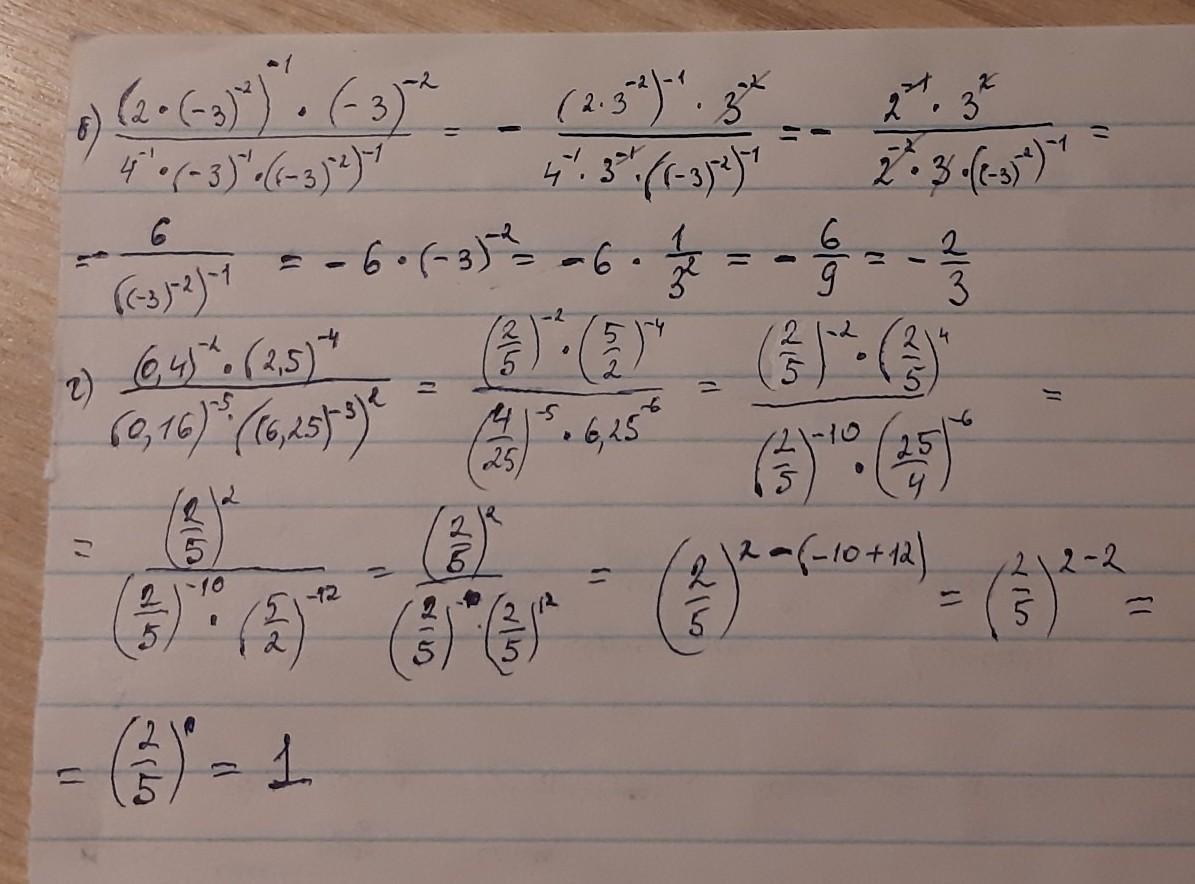 б) \frac{(2 \cdot (-3)^{-2})^{-1} \cdot (-3)^{-2}}{4^{-1} \cdot (-3)^{-1} \cdot ((-3)^{-2})^{-1}} = - \frac{(2 \cdot 3^{-2})^{-1} \cdot 3^{-2}}{4^{-1} \cdot 3^{-1} \cdot ((-3)^{-2})^{-1}} = - \frac{2^{-1} \cdot 3^{2}}{2^{-2} \cdot 3 \cdot ((-3)^{-2})^{-1}} =
= - \frac{6}{((-3)^{-2})^{-1}} = - 6 \cdot (-3)^{-2} = - 6 \cdot \frac{1}{3^{2}} = - \frac{6}{9} = - \frac{2}{3}
г) \frac{(0,4)^{-2} \cdot (2,5)^{-4}}{(0,16)^{-5} \cdot ((6,25)^{-3})^{2}} = \frac{(\frac{2}{5})^{-2} \cdot (\frac{5}{2})^{-4}}{(\frac{4}{25})^{-5} \cdot 6,25^{-6}} = \frac{(\frac{2}{5})^{-2} \cdot (\frac{2}{5})^{4}}{(\frac{2}{5})^{-10} \cdot (\frac{25}{4})^{-6}} =
= \frac{(\frac{2}{5})^{2}}{(\frac{2}{5})^{-10} \cdot (\frac{5}{2})^{-12}} = \frac{(\frac{2}{5})^{2}}{(\frac{2}{5})^{-10} \cdot (\frac{2}{5})^{12}} = (\frac{2}{5})^{2-(-10+12)} = (\frac{2}{5})^{2-2} =
= (\frac{2}{5})^{0} = 1